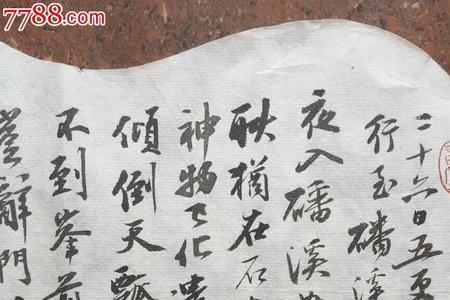 7788.com
二十六日五更
行至磻溪
夜入磻溪
耿猶在石
神物已化遺
傾倒天瓢
不到峯前
辭